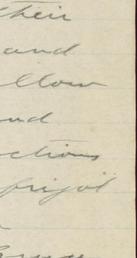 their
and
llow
nd
ctions
frijol